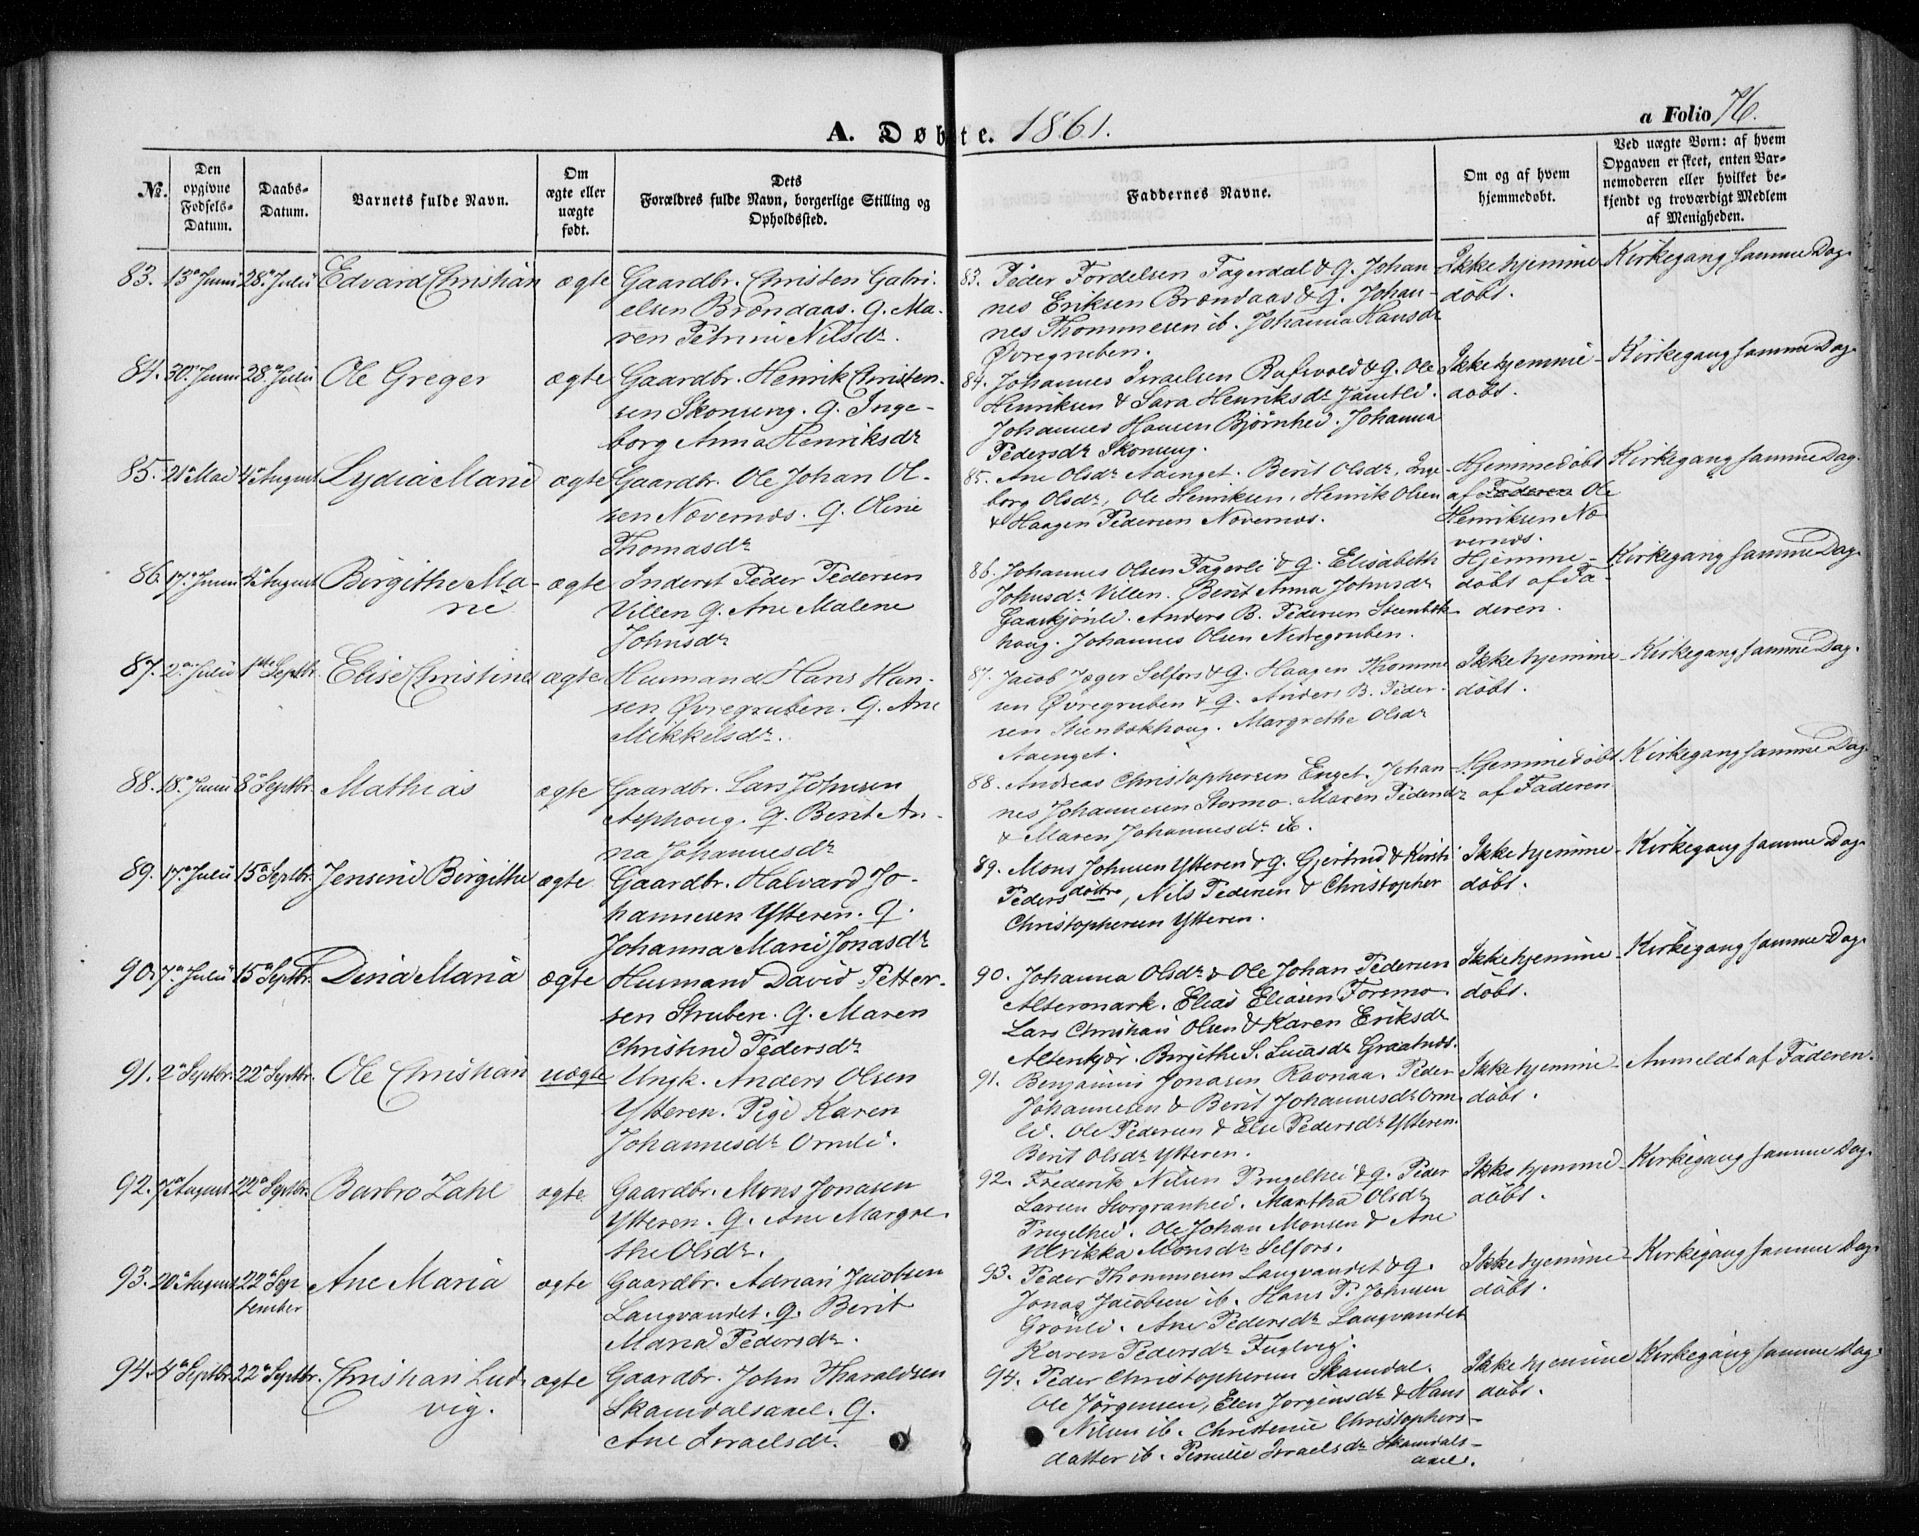 A. Døbte. 1861.
a Folio 76.
№.
Den opgivne Fødsels-Datum.
Daabs-Datum.
Barnets fulde Navn.
Om ægte eller uægte født.
Dets Forældres fulde Navn, borgerlige Stilling og Opholdssted.
Faddernes Navne.
Om og af hvem hjemmedøbt.
Ved uægte Børn: af hvem Opgaven er skeet, enten Barnemoderen eller hvilket bekjendt og troværdigt Medlem af Menigheden.
83. 13de Juni 28de Julii Edvard Christian ægte Gaardbr. Christen Gabri-
elsen Brændaas. G. Ma-
ren Petrine Nilsdr.
83. Peder Fordelsen Fagerdal & G. Johan-
nes Eriksen Brændaas & G. Johan-
nes Thommesen ib. Johanna Hansdr
Øvregruben.
Ikke hjemme-
døbt.
Kirkegang samme Dag.
84. 30. Juni 28de Julii Ole Greger ægte Gaardbr. Henrik Christen-
sen Skonseng. G. Inge-
borg Anna Henriksdr
84. Johannes Israelsen Rafvold & G. Ole
Henriksen & Sara Henriksdr Jamtli.
Johannes Hansen Bjørnhei. Johanna
Pedersdr Skonseng.
Ikke hjemme-
døbt.
Kirkegang samme Dag.
85. 21de Mai 4de August Lydia Marie ægte Gaardbr. Ole Johan Ol-
sen Nævernæs. G. Oline
Thomasdr
85. Ane Olsdr Aaenget. Berit Olsdr. Inge-
borg Olsdr, Ole Henriksen, Henrik Olsen
& Haagen Pedersen Nævernæs.
Hjemmedøbt
af Faderen Ole
Henriksen Næ-
vernæs.
Kirkegang samme Dag.
86. 17de Juni 4de August Birgithe Ma-
rie
ægte Inderst Peder Pedersen
Villen G. Ane Malene
Johnsdr
86. Johannes Olsen Fagerli & G. Elisabeth
Johnsdr Villen. Berit Anna Johnsdr
Gaaskjønli. Anders B. Pedersen Steenbok-
houg. Johannes Olsen Nedregruben.
Hjemme-
døbt af Fa-
deren.
Kirkegang samme Dag.
87. 2den Julii 1ste Septbr. Elise Christine ægte Husmand Hans Han-
sen Øvregruben. G. Ane
Mikkelsdr.
87. Jacob Jæger Selfors & G. Haagen Thomme-
sen Øvregruben & G. Anders B. Peder-
sen Stenbokhoug. Margrethe Olsdr
Aaenget.
Ikke hjemme-
døbt.
Kirkegang samme Dag.
88. 18de Juni 8de Septbr. Mathias ægte Gaardbr. Lars Johnsen
Asphoug. G. Berit An-
na Johannesdr
88. Andreas Christophersen Enget. Johan-
nes Johannesen Stormo. Maren Pedersdr
& Maren Johannesdr ib.
Hjemmedøbt
af Faderen
Kirkegang samme Dag.
89. 17de Julii 15de Septbr. Jensine Birgithe ægte Gaardbr. Halvard Jo-
hannesen Ytteren. G.
Johanna Marie Jonasdr
89. Mons Johnsen Ytteren & G. Gjertrud & Kirsti
Pedersdøttre, Nils Pedersen & Christopher
Christophersen Ytteren.
Ikke hjemme-
døbt.
Kirkegang samme Dag.
90. 7de Julii 15de Septbr. Dina Maria ægte Husmand David Petter-
sen Struben. G. Maren
Christine Pedersdr
90. Johanna Olsdr & Ole Johan Pedersen
Altermark. Elias Eliasen Forsmo.
Lars Christian Olsen & Karen Eriksdr
Altenkjær. Birgithe S. Lucasdr Graatnæs.
Ikke hjemme-
døbt.
Kirkegang samme Dag.
91. 2de Septbr. 22de Septbr. Ole Christian uægte Ungk. Anders Olsen
Ytteren. Pige Karen
Johannesdr Ormli.
91. Benjamin Jonasen Ravnaa. Peder
Johannesen & Berit Johannesdr Orm-
li. Ole Pedersen & Else Pedersdr Ytteren.
Berit Olsdr Ytteren.
Ikke hjemme-
døbt.
Anmeldt af Faderen.
92. 7de August 22de Septbr. Barbro Zahl ægte Gaardbr. Mons Jonasen
Ytteren. G. Ane Margre-
the Olsdr.
92. Frederik Nilsen Prugelhei & G. Peder
Larsen Storgranhei. Martha Olsdr
Prugelhei. Ole Johan Monsen & Ane
Ulrikka Monsdr Selfors.
Ikke hjemme-
døbt.
Kirkegang samme Dag.
93. 20de August 22de Sep-
tember
Ane Maria ægte Gaardbr. Adrian Jacobsen
Langvandet. G. Berit
Maria Pedersdr.
93. Peder Thommesen Langvandet & G.
Jonas Jacobsen ib. Hans P. Johnsen
Grønli. Ane Pedersdr Langvandet
Karen Pedersdr Fuglvig.
Ikke hjemme-
døbt.
Kirkegang samme Dag.
94. 4de Septbr. 22de Septbr. Christian Lud-
vig.
ægte Gaardbr. John Tharaldsen
Skamdalsaxel. G.
Ane Israelsdr.
94. Peder Christophersen Skamdal.
Ole Jørgensen, Elen Jørgensdr & Hans
Nilsen ib. Christense Christophers-
datter ib. Pernille Israelsdr Skamdals-
axel.
Ikke hjemme
døbt.
Kirkegang samme Dag.